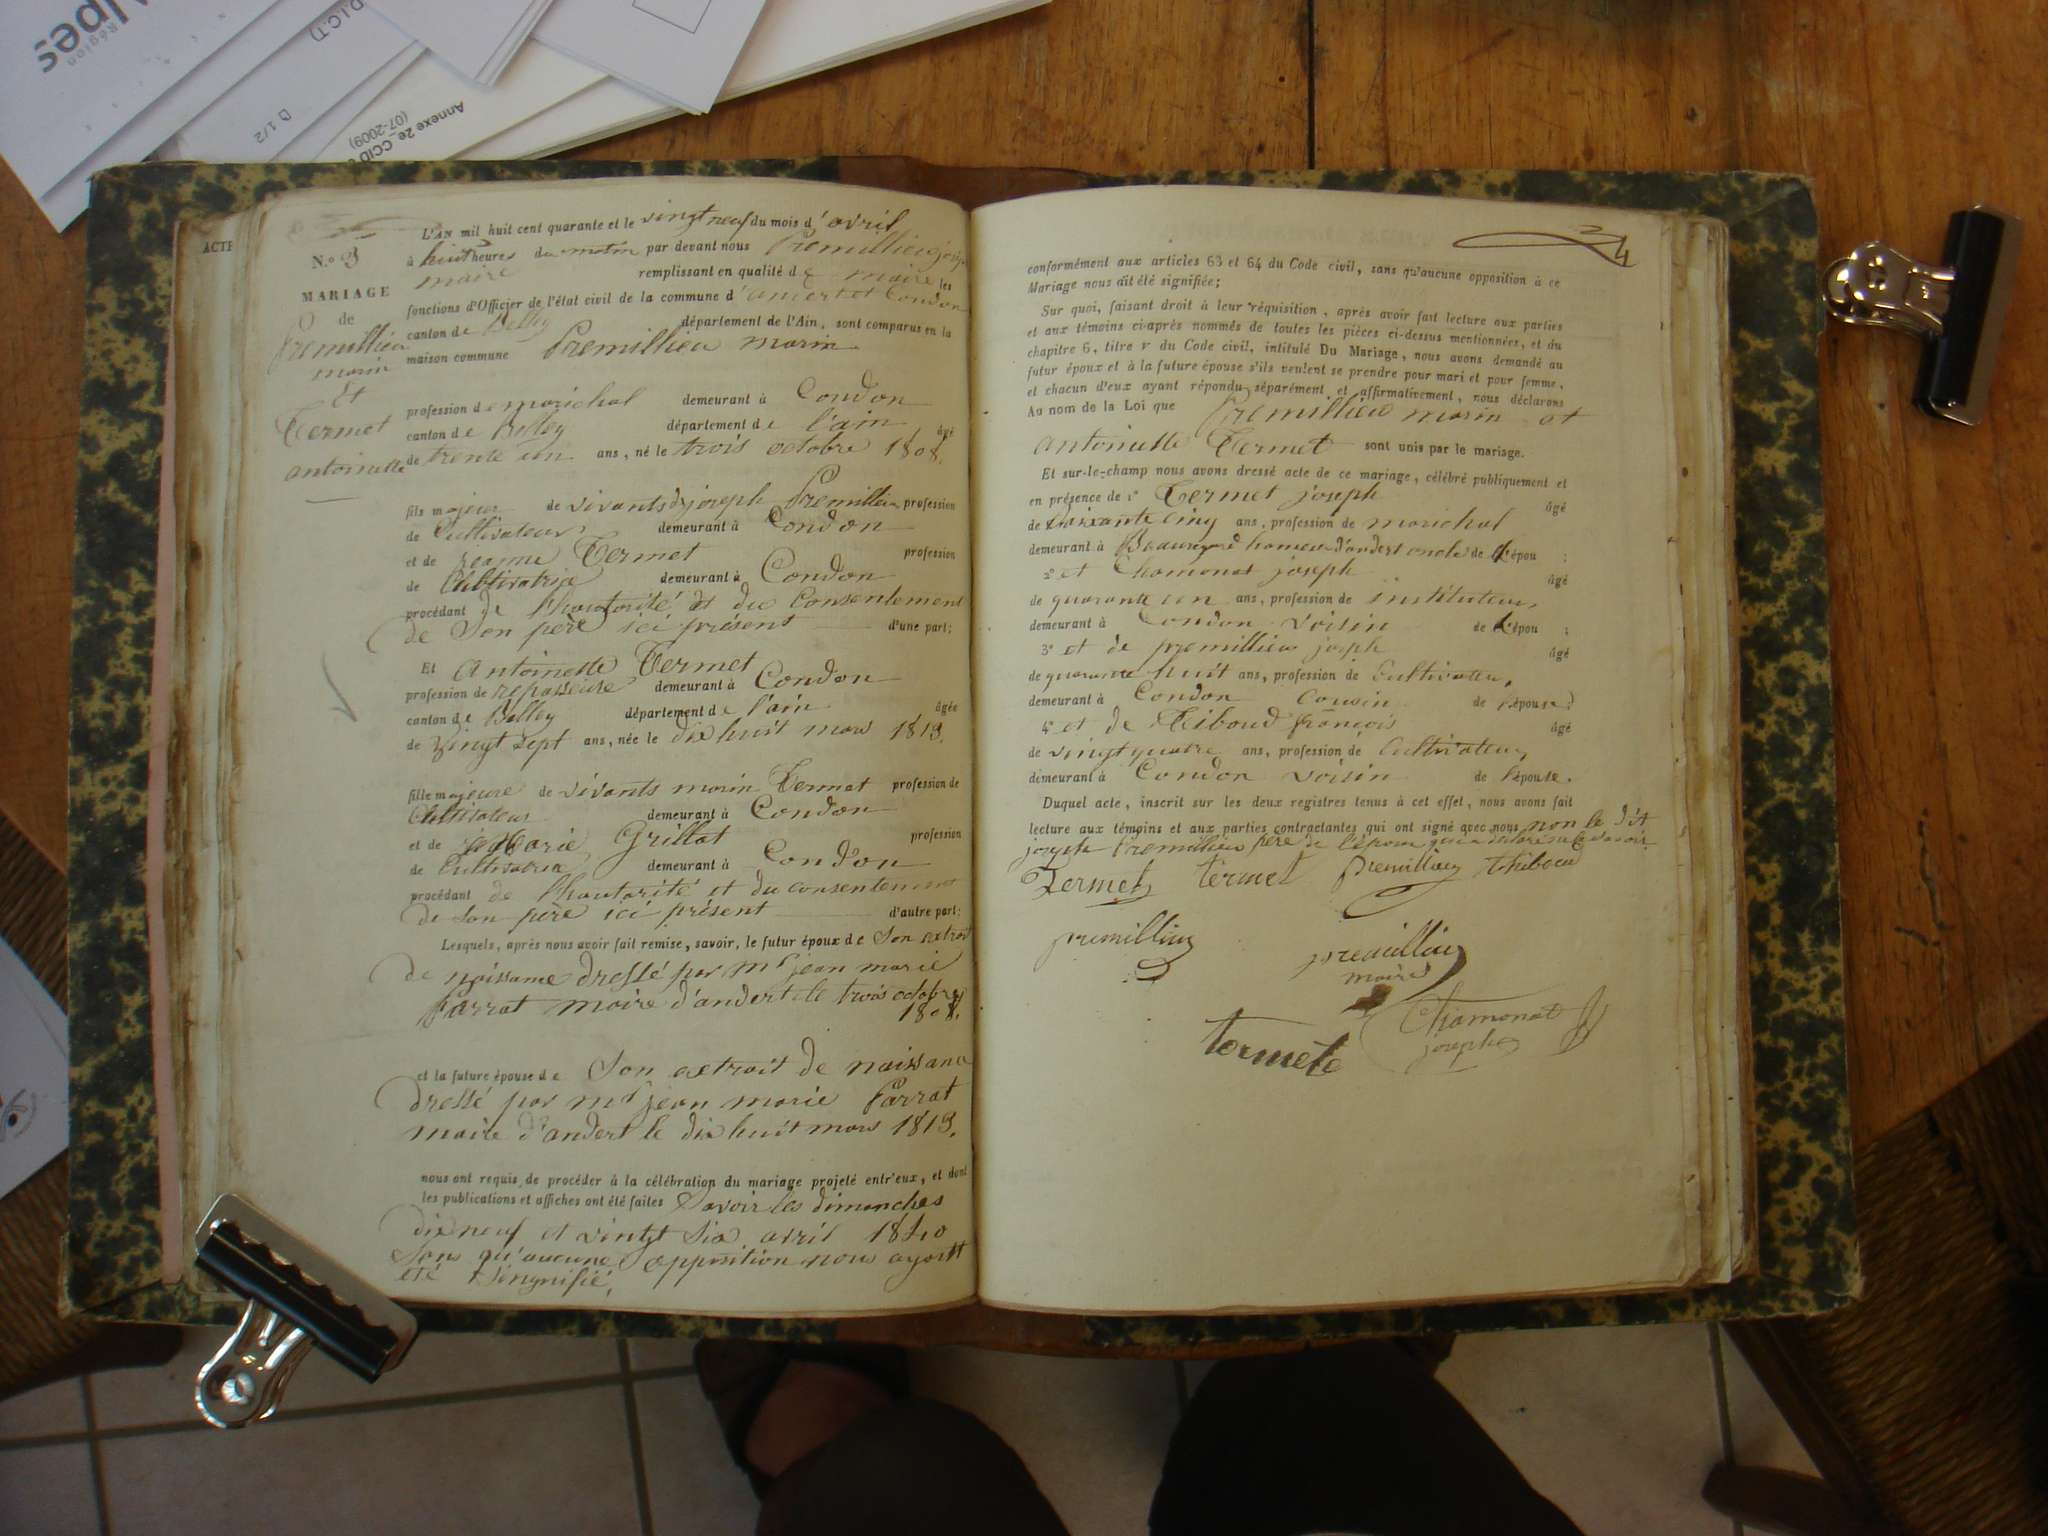 Alpes
Région
D.I.C.T)
D 1/2
Annexe 2e_CCID
(07-2009)
ACTE
N.º 3
MARIAGE
de
Premillieu
marin
Et
Termet
antoinette
L'AN mil huit cent quarante et le vingt neuf du mois d'avril
à huit heures du matin par devant nous Premillieu joseph
maire remplissant en qualité de maire les
fonctions d'Officier de l'état civil de la commune d'andert et Condon
canton de Belley département de l'Ain, sont comparus en la
maison commune Premillieu marin
profession de marichal demeurant à Condon
canton de Belley département de l'ain âgé
de trente un ans, né le trois octobre 1808.
fils majeur de vivants joseph Premillieu profession
de Cultivateur demeurant à Condon
et de jeanne Termet profession
de Cultivatrice demeurant à Condon
procédant de l'hautorité et du Consentement
de Son père ici présent d'une part;
Et Antoinette Termet
profession de repasseuse demeurant à Condon
canton de Belley département de l'ain âgée
de Vingt Sept ans, née le dix huit mars 1813.
fille majeure de vivants marin Termet profession de
Cultivateur demeurant à Condon
et de Marie Grillat profession
de Cultivatrice demeurant à Condon
procédant de l'hautorité et du consentement
de Son père ici présent d'autre part:
Lesquels, après nous avoir fait remise, savoir, le futur époux de Son extrait
de naissance dressé par mr jean marie
Parrat maire d'andert le trois octobre
1808.
et la future épouse de Son extrait de naissance
dressé par mr jean marie Parrat
maire d'andert le dix huit mars 1813.
nous ont requis de procéder à la célébration du mariage projeté entr'eux, et dont
les publications et affiches ont été faites Savoir les dimanches
dix neuf et vingt Six avril 1840
Sans qu'aucune opposition nous ayant
été Singnifié,
conformément aux articles 63 et 64 du Code civil, sans qu'aucune opposition à ce
Mariage nous ait été signifiée;
Sur quoi, faisant droit à leur réquisition, après avoir fait lecture aux parties
et aux témoins ci-après nommés de toutes les pièces ci-dessus mentionnées, et du
chapitre 6, titre v du Code civil, intitulé Du Mariage, nous avons demandé au
futur époux et à la future épouse s'ils veulent se prendre pour mari et pour femme,
et chacun d'eux ayant répondu séparément et affirmativement, nous déclarons
Au nom de la Loi que Premillieu marin et
antoinette Termet sont unis par le mariage.
Et sur-le-champ nous avons dressé acte de ce mariage, célébré publiquement et
en présence de 1º Termet joseph âgé
de Soixante cinq ans, profession de marichal
demeurant à Beauregard hameau d'andert oncle de L'épou
2º et Chamonat joseph âgé
de quarante un ans, profession de instituteur,
demeurant à Condon voisin de L'épou
3º et de premillieu joseph âgé
de quarante huit ans, profession de Cultivateur,
demeurant à Condon Cousin de l'épouse
4º et de Tiboud françois âgé
de vingt quatre ans, profession de Cultivateur,
demeurant à Condon voisin de l'épouse.
Duquel acte, inscrit sur les deux registres tenus à cet effet, nous avons fait
lecture aux témoins et aux parties contractantes qui ont signé avec nous non le dit
joseph Premillieu père de l'époux
Termet termet premillieu thiboud
premillieu premillieu
maire
termete Chamonat
joseph